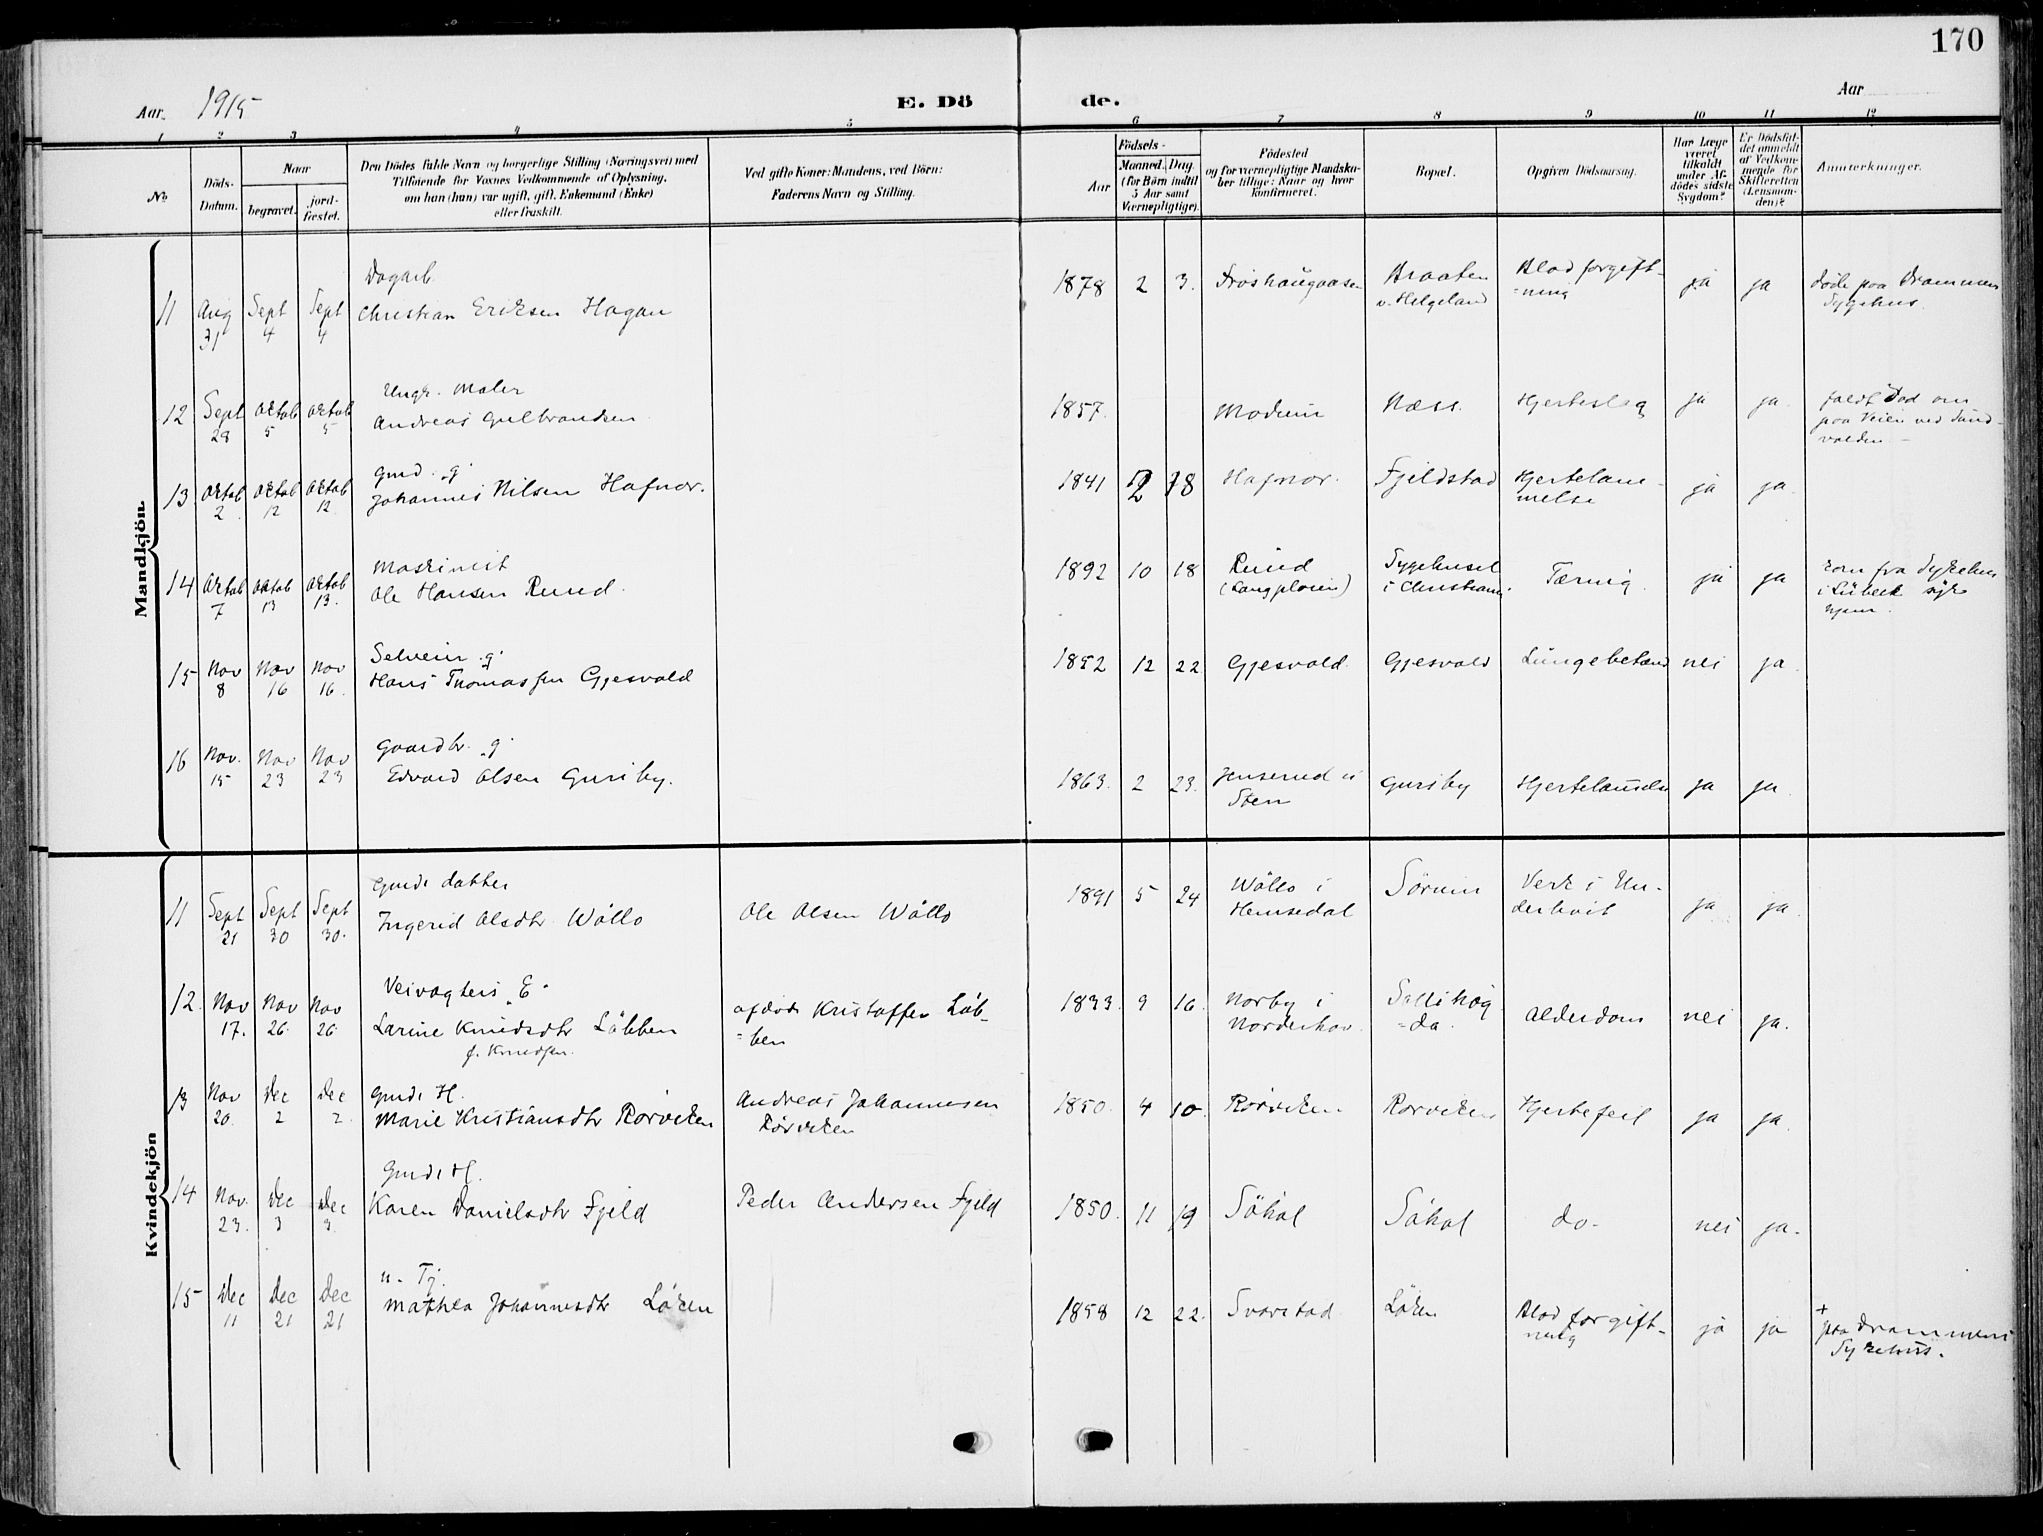 170
Aar. 1915
E. Dö
de.
Aar
1 2 3 4 5 6 7 8 9 10 11 12
No.
Döds-Datum.
Naar
begravet.
jord-fæstet.
Den Dödes fulde Navn og borgerlige Stilling (Næringsvei) med
Tilföiende for Voxnes Vedkommende af Oplysning,
om han (hun) var ugift, gift, Enkemand (Enke)
eller fraskilt.
Ved gifte Koner: Mandens, ved Börn:
Faderens Navn og Stilling.
Födsels-
Aar
Maaned. Dag.
(for Börn indtil
5 Aar samt
Værnepligtige).
Födested
og for værnepligtige Mandska-
ber tillige: Naar og hvor
konfirmeret.
Bopæl.
Opgiven Dödsaarsag.
Har Læge
været
tilkaldt
under Af-
dödes sidste
Sygdom?
Er Dödsfal-
det anmeldt
af Vedkom-
mende for
Skifteretten
(Lensman-
den)?
Anmærkninger.
Mandkjön.
Dagarb.
11 Aug 31 Sept 4 Sept 4 Christian Eriksen Hagan 1878 2 3. Froshaugaasen Braaten v. Helgeland Blodforgift-ning ja ja döde paa Drammens Sygehus.
Ungk. Maler
12 Sept 28 Oktob 5 Oktob 5 Andreas Gulbrandsen 1857. Modum Næss. Hjerteslag ja ja. faldt död om paa Veien ved Sund-volden
Gmd. g.
13 Oktob 2 Oktob 12 Oktob 12 Johannes Nilsen Hafnor. 1841 12 18 Hafnor. Fjeldstad Hjertelam-melse ja ja.
Maskinist
14 Oktob 7 Oktob 13 Oktob 13. Ole Hansen Rund. 1892 10 18 Rund Sygehuset i Christiania Tæring. ja ja kom fra Sykehus i Lübeck syk hjem.
Selveier g.
15 Nov 8 Nov 16 Nov 16. Hans Thomassen Gjesvold 1852 12 22 Gjesvold. Gjesvold Lungebetænd nei ja.
Gaardbr. g.
16 Nov. 15 Nov 23 Nov 23 Edvard Olsen Gursby. 1863. 2 23. Jenserud u Sten Gursby Hjertelammelse ja ja.
Kvindekjön
Gmds datter
11 Sept 21 Sept 30 Sept 30. Ingerid Olsdtr. Wöllo Ole Olsen Wöllo 1891 5 24 Wöllo i Hemsedal Sörum Verk i Un-derlivet ja ja.
Veivogters E.
12. Nov 17. Nov 26. Nov 26. Larine Knudsdtr Löbben f. Knudsen. afdöde Kristoffer Löb-ben 1833. 9 16. Norby i Norderhov Sollihög-da. Alderdom nei ja.
Gmds H.
13 Nov 20. Dec 2 Dec 2. Marie Kristiansdtr Rörviken Andreas Johannesen Rörviken 1850. 4 10. Rörviken Rörviken Hjertefeil ja ja.
Gmds H.
14 Nov. 23. Dec 3 Dec 3. Karen Danielsdtr Fjeld Peder Andersen Fjeld 1850. 11 19 Söhol Söhol do- nei ja.
u. Tj.
15 Dec 11 Dec 21 Dec 21 Mathea Johannesdtr Löken 1858 12 22. Svarstad. Löken Blodforgift-ning ja ja + paa Drammens Sykehus.